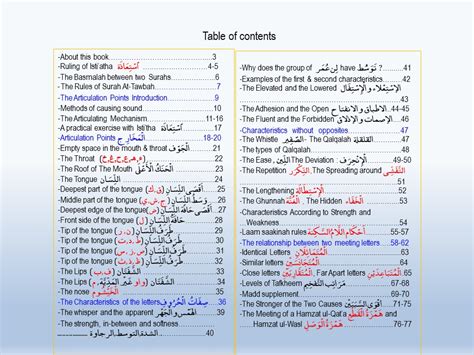 Table of contents
-About this book.....................................3
-Ruling of Isti'atha اِسْتِعَاذَة ........................4-5
-The Basmalah between two Surahs................6
-The Rules of Surah At-Tawbah.......................7
-The Articulation Points Introduction................9
-Methods of causing sound...........................10
-Articulating Mechanism...........................11-16
-A practical exercise with Isti'tha اِسْتِعَاذَة ..........17
-Articulation Points الْمَخَارِج .....................18-20
-Empty space in the mouth & throat الْجَوْف ......21
-The Throat ..............22
-The Roof of The Mouth الْحَنَكُ الْأَعْلَى ............23
-The Tongue اللِّسَان .........................24
-Deepest part of the tongue (ق,ك) أَقْصَى اللِّسَان ....25
-Middle part of the tongue (ج,ش,ي) وَسَطُ اللِّسَان ....26
-Deepest edge of the tongue (ض) ......27
-Front side of the tongue (ل) ......28
-Tip of the tongue (ن) طَرَفُ اللِّسَان ......29
-Tip of the tongue (ر) طَرَفُ اللِّسَان ......30
-Tip of the tongue (ط,د,ت) طَرَفُ اللِّسَان ......31
-Tip of the tongue طَرَفُ اللِّسَان ......32
-Tip of the tongue طَرَفُ اللِّسَان ......33
-The Lips (ف) الشَّفَتَان ......34
-The Lips الشَّفَتَان ......34
-The nose الْخَيْشُوم ......35
-The Characteristics of the letters صِفَاتُ الْحُرُوف ...36
-The whisper and the apparent ......39
-The strength, in-between and softness............
.................. الشدة,التوسط,الرخاوة......40
-Why does the group of لِنْ عُمَر have تَوَسُّط ?.........41
-Examples of the first & second characteristics.......42
-The Elevated and the Lowered الإِسْتِعْلَاء وَالإِسْتِفَال
43
-The Adhesion and the Open الاطباق والانفتاح ..44-45
-The Fluent and the Forbidden الإصمات والإذلاق ...46
-Characteristics without opposites ...............47
-The Whistle الصَّفِير - The Qalqalah القلقلة ......47
-The types of Qalqalah.................48
-The Ease , اللِّين The Deviation الانحراف ......49-50
-The Repetition التَّكْرِير ,The Spreading around التَّفَشِّي
51
-The Lengthening الْإِسْتِطَالَة ...............52
-The Ghunnah الْغُنَّة , The Hidden الْخَفَاء .......53
-Characteristics According to Strength and
Weakness..........................54
-Laam saakinah rules أَحْكَام اللَّامِ السَّاكِنَة ......55-57
-The relationship between two meeting letters.....58-62
-Identical Letters الْمُتَمَاثِلَان ...............63
-Similar letters الْمُتَجَانِسَيْن ...............64
-Close letters الْمُتَقَارِبَيْن , Far Apart letters الْمُتَبَاعِدَيْن .66
-Levels of Tafkheem مَرَاتِب التَّفْخِيم ......67
-Madd supplement......................70
-The Stronger of the Two Causes أَقْوَى السَّبَبَيْن ......75
-The Meeting of a Hamzat ul-Qat'a هَمْزَةُ الْقَطْع and
Hamzat ul-Wasl هَمْزَةُ الْوَصْل ............76-77